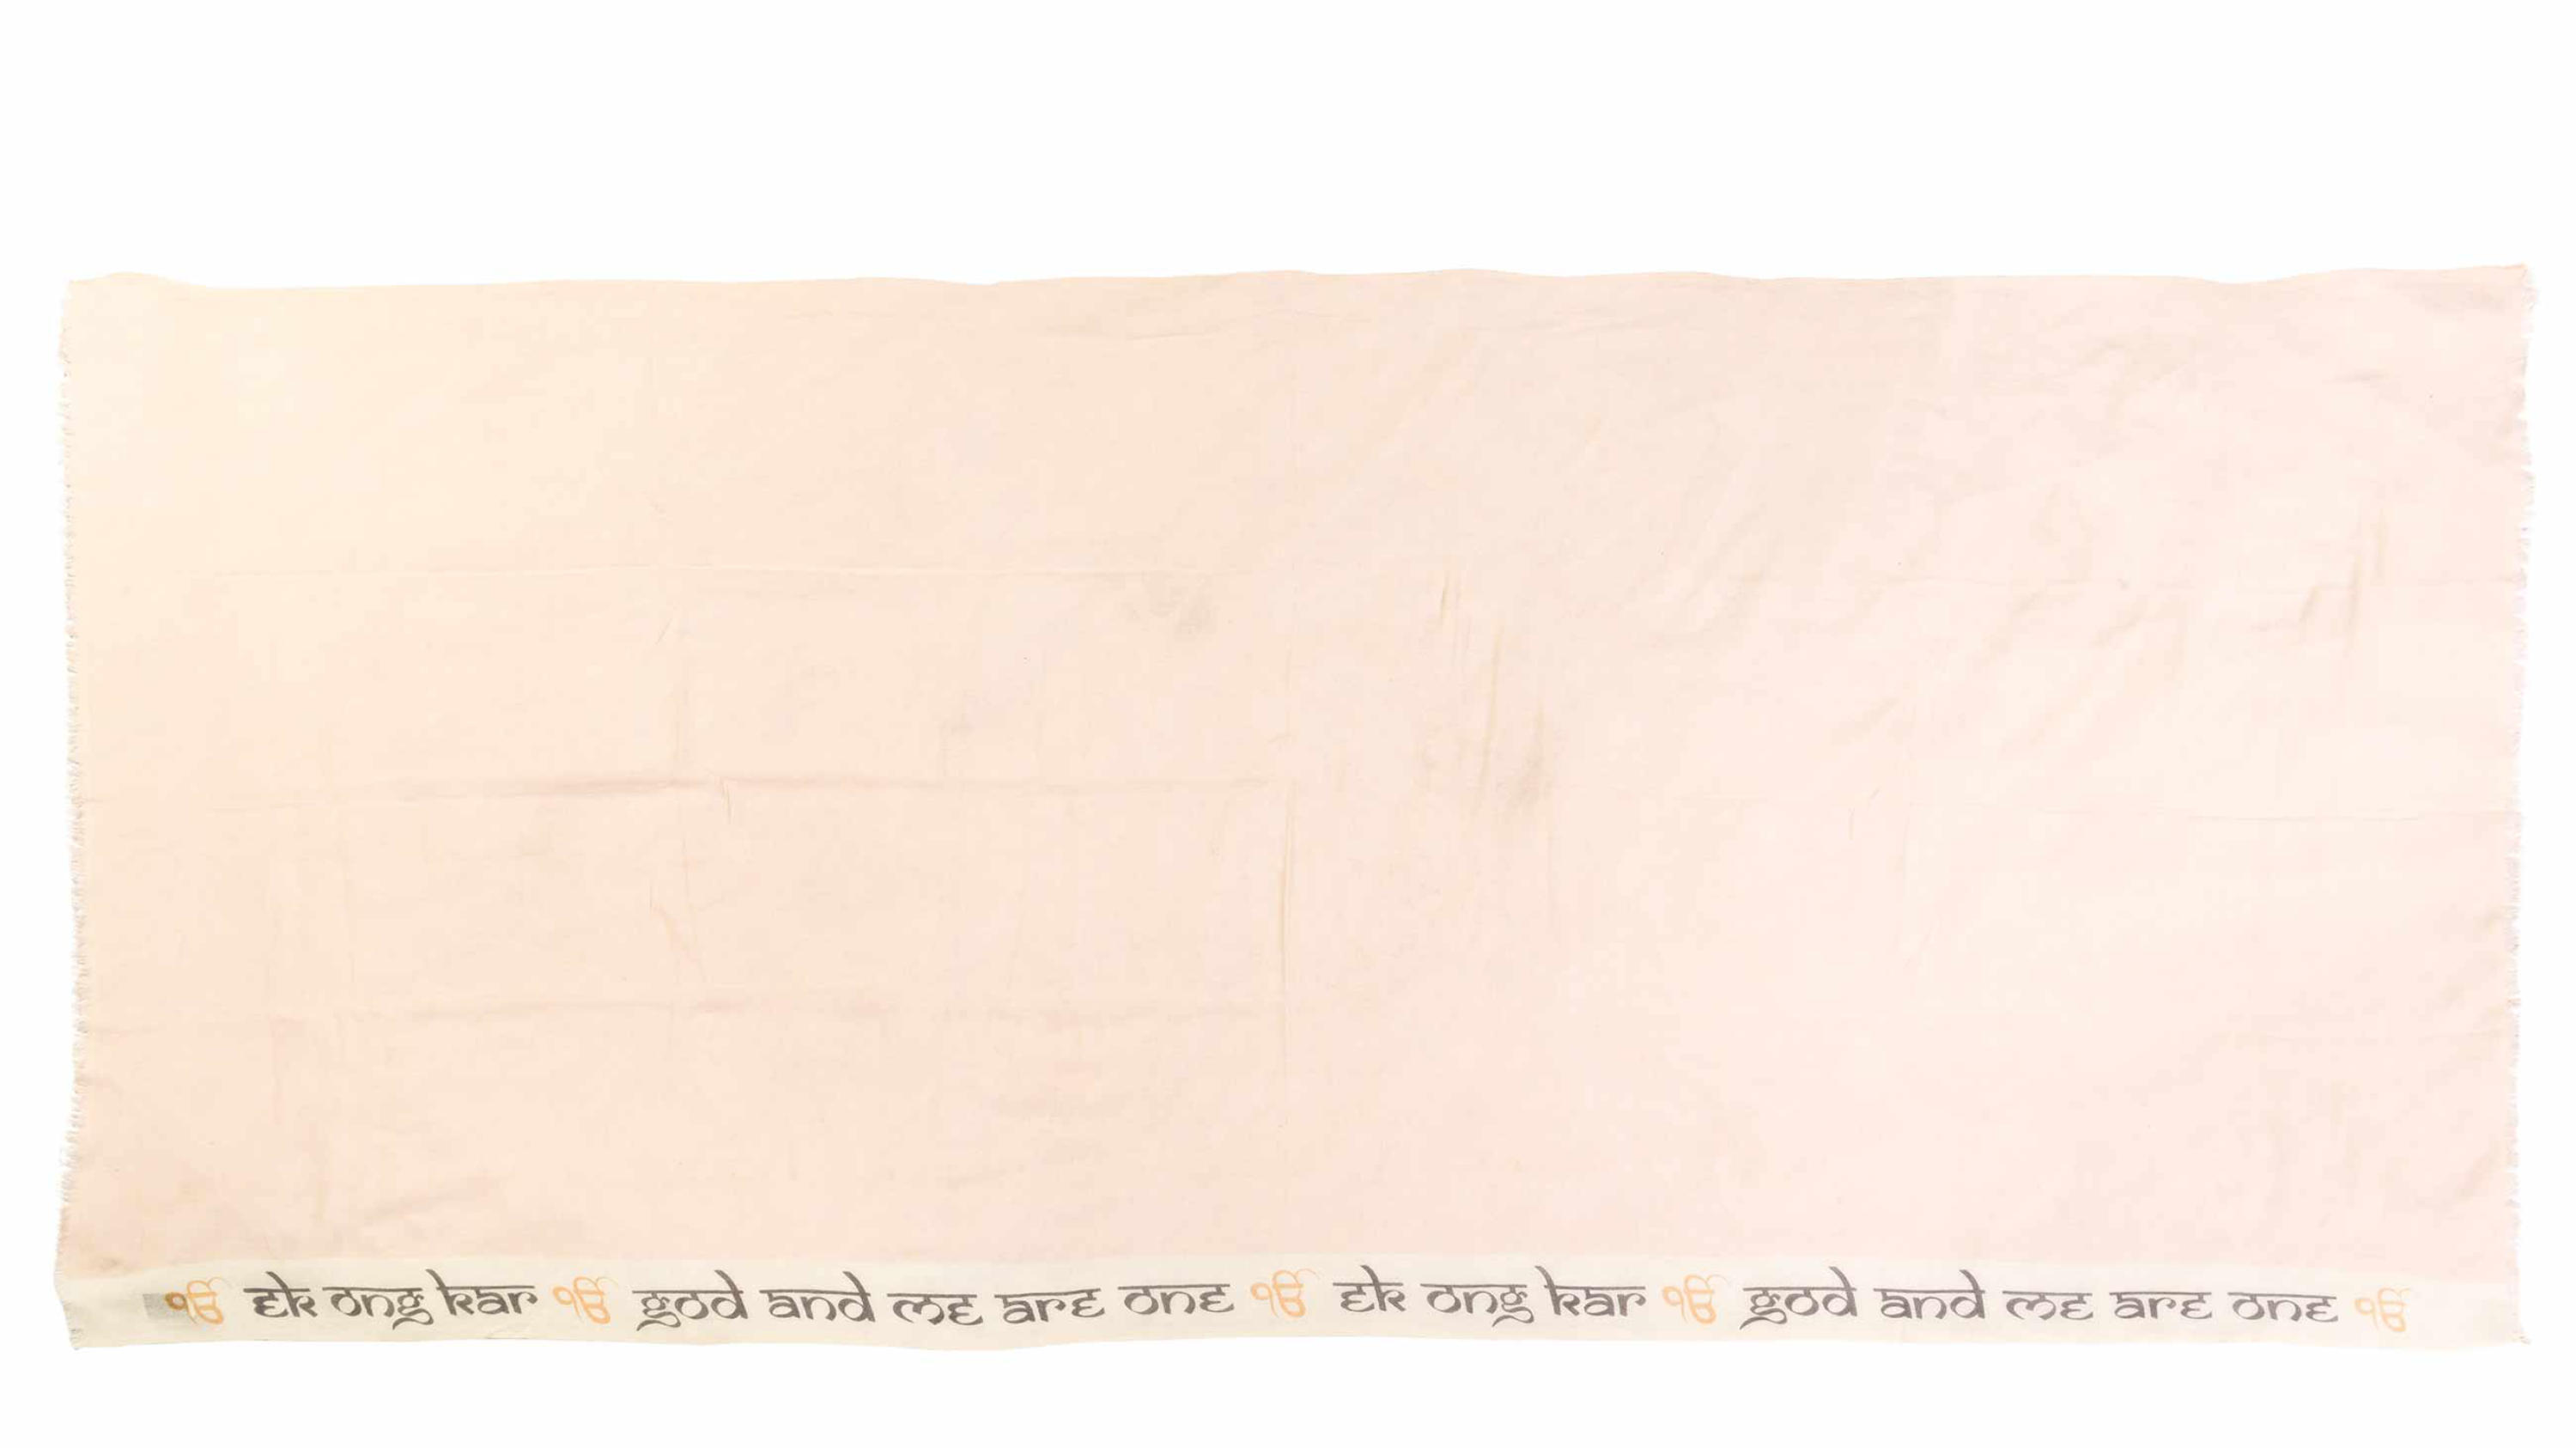 ੴ ek ong kar ੴ god and me are one ੴ ek ong kar ੴ god and me are one ੴ